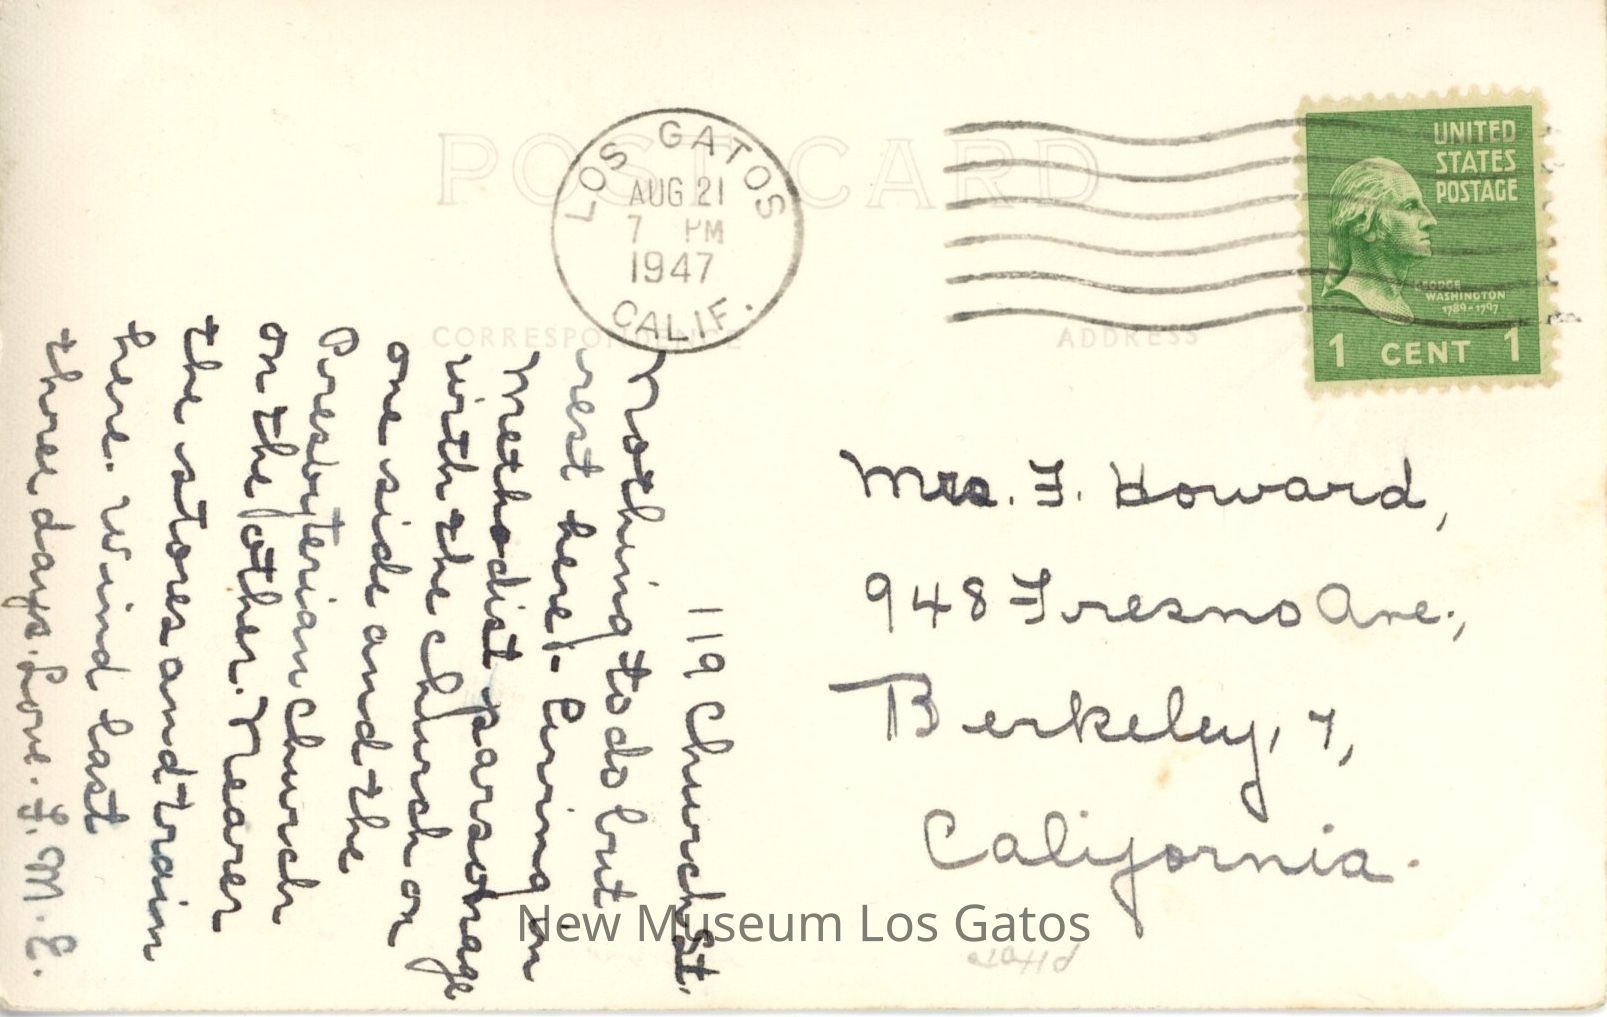 POST CARD
LOS GATOS
AUG 21
7 PM
1947
CALIF.
UNITED
STATES
POSTAGE
GEORGE
WASHINGTON
1789-1797
1 CENT 1
CORRESPONDENCE
ADDRESS
119 Church St.
Nothing to do but
rest here. Living in
Methodist parsonage
with the church on
one side and the
Presbyterian church
on the other. Nearer
the stores and train
here. Wind last
three days. Love. F. M. E.
Mrs. F. Howard,
948 Fresno Ave.,
Berkeley, 7,
California.
New Museum Los Gatos